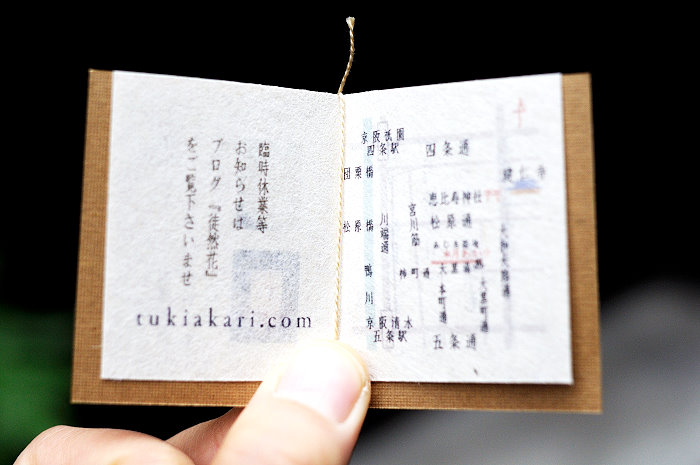 臨時休業等
お知らせは
ブログ『徒然花』
をご覧下さいませ
tukiakari.com
京阪祇園
四条駅
四条通
団栗橋
建仁寺
恵比寿神社
松原橋
川端通
宮川筋
松原通
大和大路通
鴨川
柿町通
大黒通
大本町通
大黒町通
京阪清水
五条駅
五条通